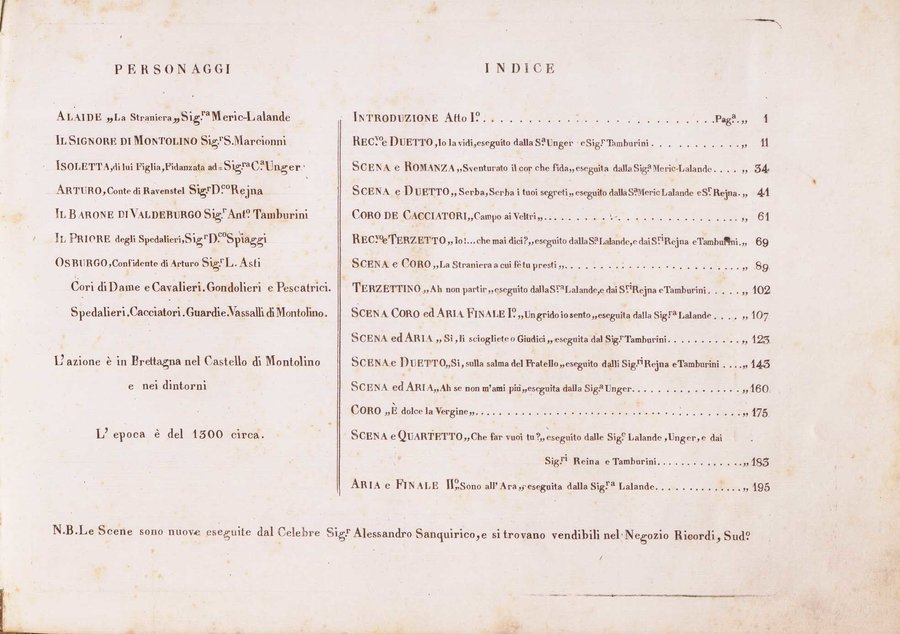 PERSONAGGI
ALAIDE „La Straniera„ Sig.ra Meric-Lalande
IL SIGNORE DI MONTOLINO Sig.r S. Marcionni
ISOLETTA, di lui Figlia, Fidanzata ad = Sig.ra C.a Unger
ARTURO, Conte di Ravenstel Sig.r D.co Rejna
IL BARONE DI VALDEBURGO Sig.r Ant.o Tamburini
IL PRIORE degli Spedalieri, Sig.r D.co Spiaggi
OSBURGO, Confidente di Arturo Sig.r L. Asti
Cori di Dame e Cavalieri. Gondolieri e Pescatrici.
Spedalieri. Cacciatori. Guardie. Vassalli di Montolino.
L'azione è in Brettagna nel Castello di Montolino
e nei dintorni
L' epoca è del 1300 circa.
INDICE
INTRODUZIONE Atto I.o . . . . Pag.a „ 1
REC.vo e DUETTO, Io la vidi, eseguito dalla S.a Unger e Sig.r Tamburini . . . . „ 11
SCENA e ROMANZA „Sventurato il cor che fida„ eseguita dalla Sig.a Meric-Lalande . . . . „ 34
SCENA e DUETTO „Serba, Serba i tuoi segreti„ eseguito dalla S.a Meric Lalande e S.r Rejna. „ 41
CORO DE CACCIATORI „Campo ai Veltri„ . . . . „ 61
REC.vo e TERZETTO „Io!... che mai dici?„ eseguito dalla S.a Lalande, e dai S.ri Rejna e Tamburini. „ 69
SCENA e CORO „La Straniera a cui fè tu presti„ . . . . „ 89
TERZETTINO „Ah non partir„ eseguito dalla S.ra Lalande, e dai S.ri Rejna e Tamburini . . . . „ 102
SCENA CORO ed ARIA FINALE I.o „Un grido io sento„ eseguita dalla Sig.ra Lalande . . . . „ 107
SCENA ed ARIA „Sì, li sciogliete o Giudici„ eseguita dal Sig.r Tamburini . . . . „ 123
SCENA e DUETTO „Si, sulla salma del Fratello„ eseguito dalli Sig.ri Rejna e Tamburini . . . . „ 143
SCENA ed ARIA „Ah se non m'ami più„ eseguita dalla Sig.a Unger . . . . „ 160
CORO „È dolce la Vergine„ . . . . „ 175
SCENA e QUARTETTO „Che far vuoi tu?„ eseguito dalle Sig.e Lalande, Unger, e dai
Sig.ri Reina e Tamburini . . . . „ 183
ARIA e FINALE II.o „Sono all' Ara„ eseguita dalla Sig.ra Lalande . . . . „ 195
N.B. Le Scene sono nuove eseguite dal Celebre Sig.r Alessandro Sanquirico, e si trovano vendibili nel Negozio Ricordi, Sud.o